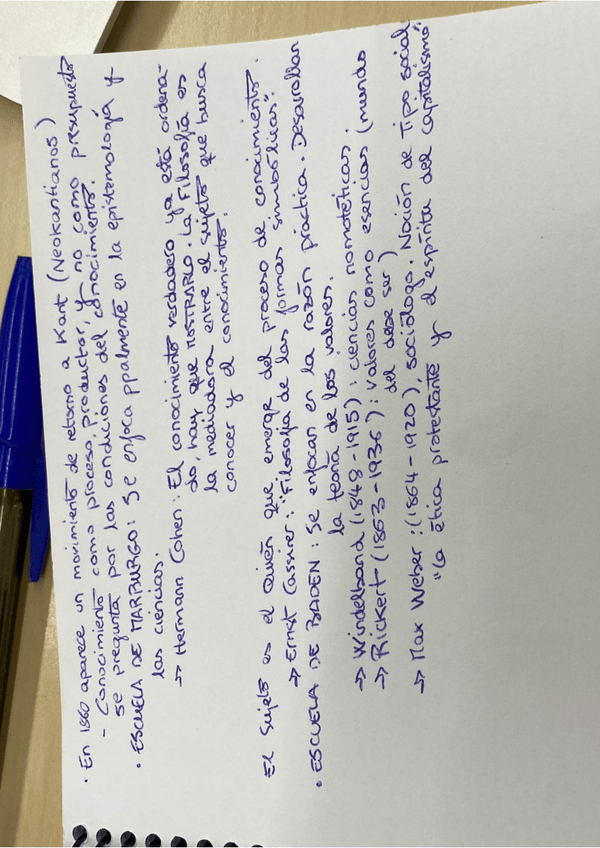 · En 1860 aparece un movimiento de retorno a Kant (Neokantianos)
- Conocimiento como proceso, productor, y no como presupuesto
se pregunta por las condiciones del conocimiento.
· ESCUELA DE MARBURGO: Se enfoca ppalmente en la epistemología y
las ciencias.
→ Hermann Cohen: El conocimiento verdadero ya está ordena-
do, hay que MOSTRARLO. La Filosofía es
la mediadora entre el sujeto que busca
conocer y el conocimiento.
El sujeto es el Quién que emerge del proceso de conocimiento.
→ Ernst Cassirer: "Filosofía de las formas simbólicas".
· ESCUELA DE BADEN: Se enfocan en la razón práctica. Desarrollan
la teoría de los valores.
→ Windelband (1848-1915): ciencias nomotéticas;
→ Rickert (1863-1936): valores como esencias (mundo
del debe ser)
→ Max Weber: (1864-1920), sociólogo. Noción de Tipo social
"La ética protestante y el espíritu del capitalismo"